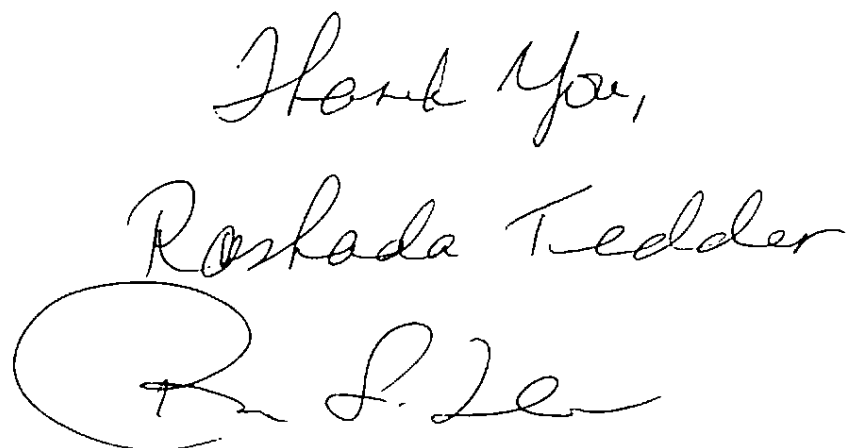 Thank You,
Roshada Tedder